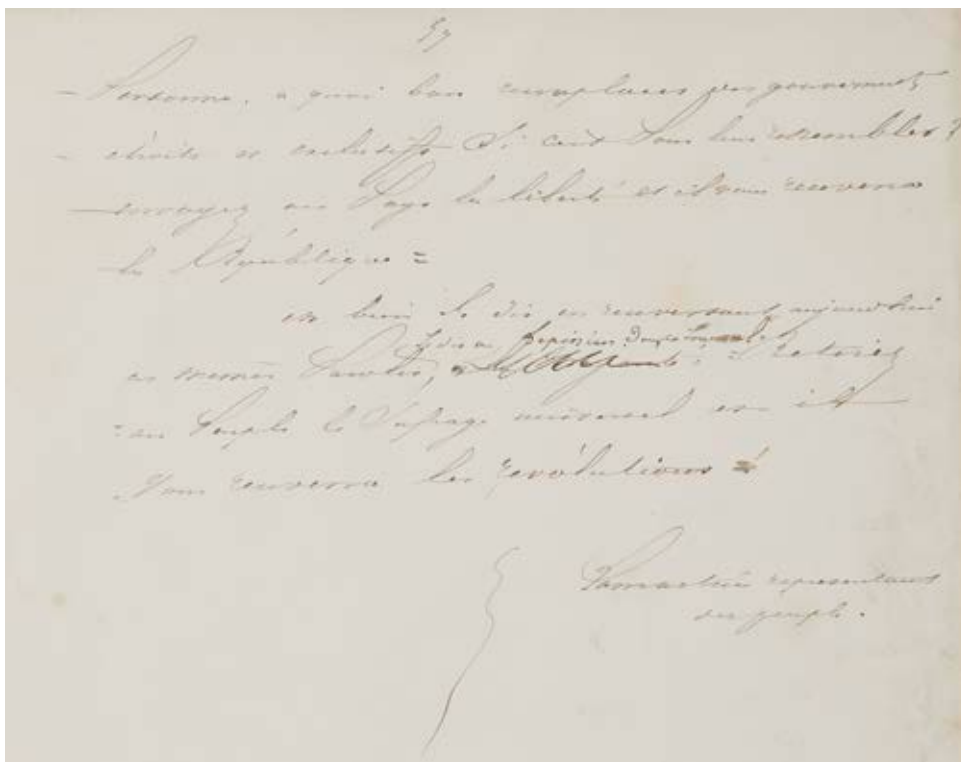 57
- personne. a quoi bon remplacer des gouvernemts
- étroits et exclusifs Si c'est pour leur ressembler?
- envoyez au Pays la liberté et il vous renverra
la République =
eh bien Je dis en renversant aujourdhui
ces mêmes paroles, = retirez
= au peuple le Suffrage universel et il
Vous renverra les révolutions =!
Lamartine représentant
du peuple.